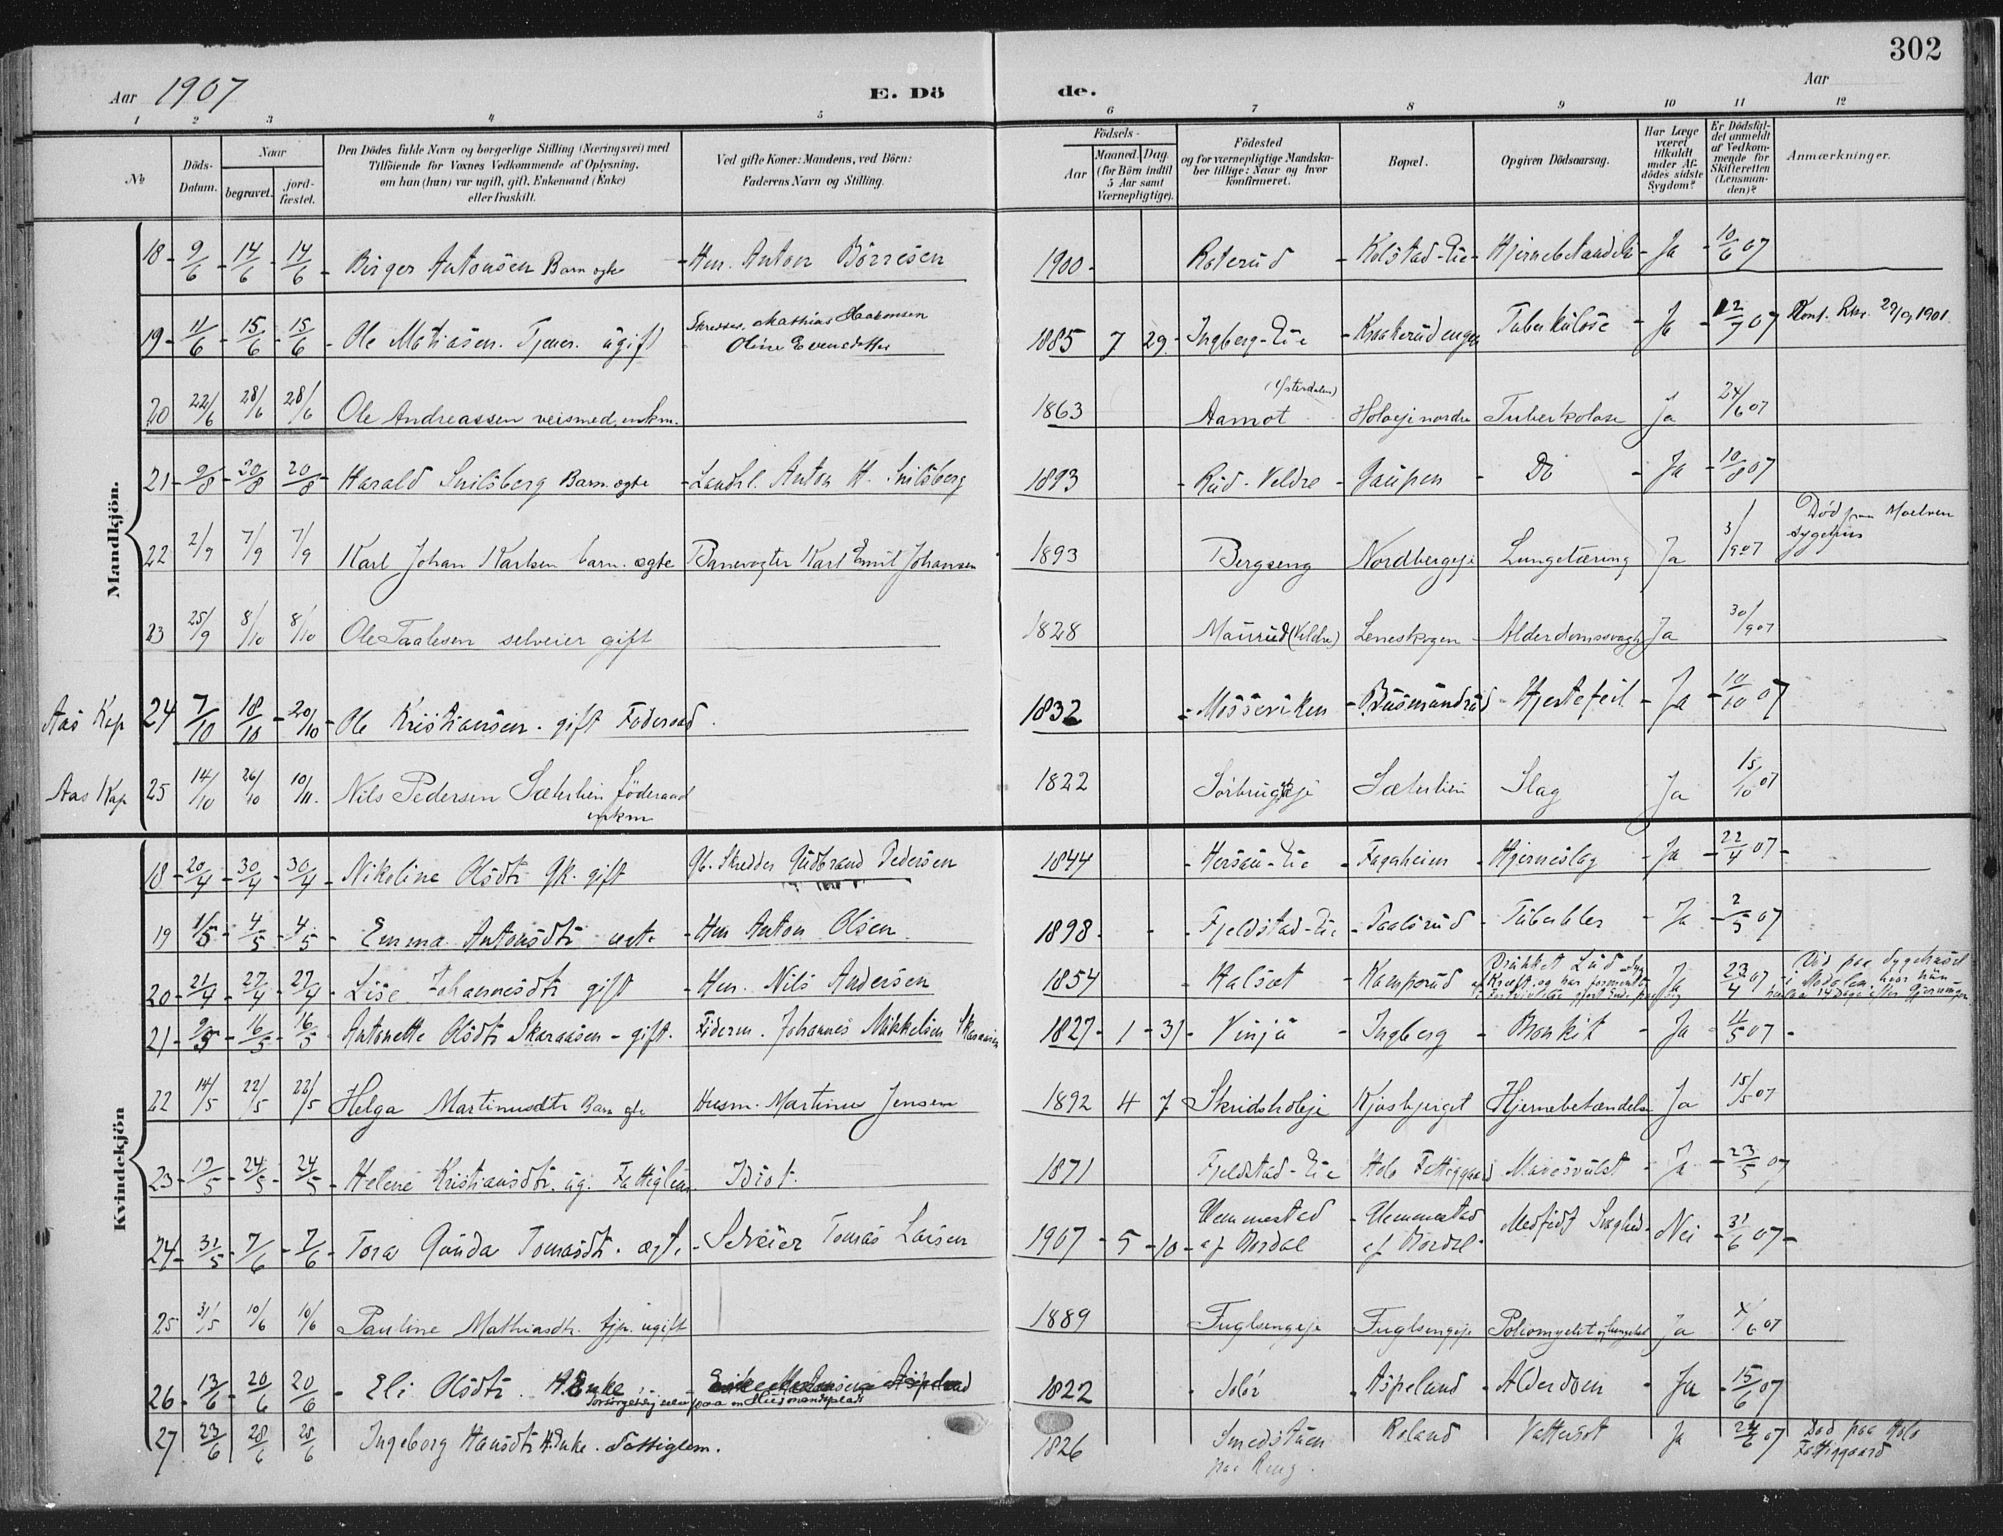 302
Aar 1907 E. Dö de. Aar
1 2 3 4 5 6 7 8 9 10 11 12
No
Döds-Datum.
Naar
begravet.
jord-fæstet.
Den Dödes fulde Navn og borgerlige Stilling (Næringsvei) med
Tilföiende for Voxnes Vedkommende af Oplysning,
om han (hun) var ugift, gift, Enkemand (Enke)
eller fraskilt.
Ved gifte Koner: Mandens, ved Börn:
Faderens Navn og Stilling.
Födsels-
Aar
Maaned. Dag.
(for Börn indtil
5 Aar samt
Værnepligtige).
Födested
og for værnepligtige Mandska-
ber tillige: Naar og hvor
konfirmeret.
Bopæl.
Opgiven Dödsaarsag.
Har Læge
været
tilkaldt
under Af-
dödes sidste
Sygdom?
Er Dödsfal-
det anmeldt
af Vedkom-
mende for
Skifteretten
(Lensman-
den)?
Anmærkninger.
Mandkjön.
18 - 9/6 - 14/6 - 14/6 - Birger Antonsen Barn ægte - Hm. Anton Börresen 1900 - Roterud - Kolstad-Eie - Hjernebetændelse - Ja - 10/6 07
19 - 11/6 - 15/6 - 15/6 - Ole Matiasen. Tjener. ugift Mathias Haakonsen
Oline Evensdatter 1885 7 29 - Ingberg-Eie - Tuberkulose - Ja - 12/7 07 Konf. 1901
20 22/6 28/6 28/6 Ole Andreassen veismed, enkm. 1863 (Østerdalen)
Aamot nordre Tuberkolose Ja 24/6 07
21 - 9/8 - 20/8 - 20/8 - Harald Snilsberg Barn. ægte - Landh. Anton H. Snilsberg 1893 - Rud. Veldre - Gaupen - Do - Ja - 10/8 07
22 2/9 7/9 7/9 Karl Johan Karlsen barn. ægte Banevogter Karl Emil Johansen 1893 Bergseng Nordbergeje Lungetæring Ja 3/9 07 Död paa Moelven
sygehus
23 25/9 8/10 8/10 Ole Taalesen selveier gift 1828 Maurud (Veldre) Leneskogen Alderdomssvagh. Ja 30/9 07
Aas Kap 24 7/10 - 18/10 - 20/10 - Ole Kristiansen. gift Föderaad. 1832 - Mosseviken - Busmundrud - Hjertefeil - Ja - 10/10 07
Aas Kap 25 14/10 26/10 10/11. Nils Pedersen Sæterlien föderaad
enkm 1822 Sæterlien Slag Ja 15/10 07
Kvindekjön
18 - 20/4 - 30/4 - 30/4 - Nikoline Olsdtr Gk. gift Gb. Skredder Gudbrand Pedersen 1844 - Eie - Fagaheim - Hjerneslag - Ja - 22/4 07 -
19 1/5 - 4/5 - 4/5 - Emma Antonsdtr ægte - Hm Anton Olsen 1898 - Fjeldstad-Eie - Taalsrud - Ja - 2/5 07
20 - 21/4 - 27/4 - 27/4 - Lise Johannesdtr gift - Hm. Nils Andersen 1854 - Halsæt - Kamperud Drukket Lud
Ja 23/4 07 Död paa Sygehuset
21 - 9/5 - 16/5 - 16/5 - Antonette Olsdtr Skaraasen - gift. - Föderm. Johannes Mikkelsen Skaraasen 1827 - 1 - 31 - Vinju - Ingberg - Bronkit - Ja - 11/5 07 -
22 14/5 22/5 22/5 Helga Martinusdtr Barn ægte Husm. Martinus Jensen 1892 4 7 Skridsholeje Kjosbjerget Hjernebetændelse Ja 15/5 07
23 - 19/5 - 24/5 - 24/5 - Helene Kristiansdtr. ug. Fattiglem Idiot. 1871 Fjeldstad-Eie Holo Fattiggaard Mavesvulst - Ja - 23/5 07
24 - 31/5 - 7/6 - 7/6 - Tora Gunda Tomasdtr. ægte - Selveier Tomas Larsen 1907 - 5 - 10 - Hemmestad
af Bordal - Hemmestad
af Bordal Medfödt Svaghed - Nei - 31/6 07 -
25 31/5 10/6 10/6 Pauline Mathiasdtr. tjp. ugift 1889 Fuglsengeje Fuglsengeje Poliomyelit Ja 4/6 07
26 - 13/6 - 20/6 - 20/6 - Eli Olsdtr. Enke
paa en Husmandsplads 1822 - Solör - Aspelund - Alderdom - Ja - 15/6 07
27 23/6 28/6 28/6 Ingeborg Hansdtr H.Enke. Fattiglem. 1826 Smedstuen
paa Ring. Roland Vattersot Ja 24/6 07 Död paa Holo
Fattiggaard